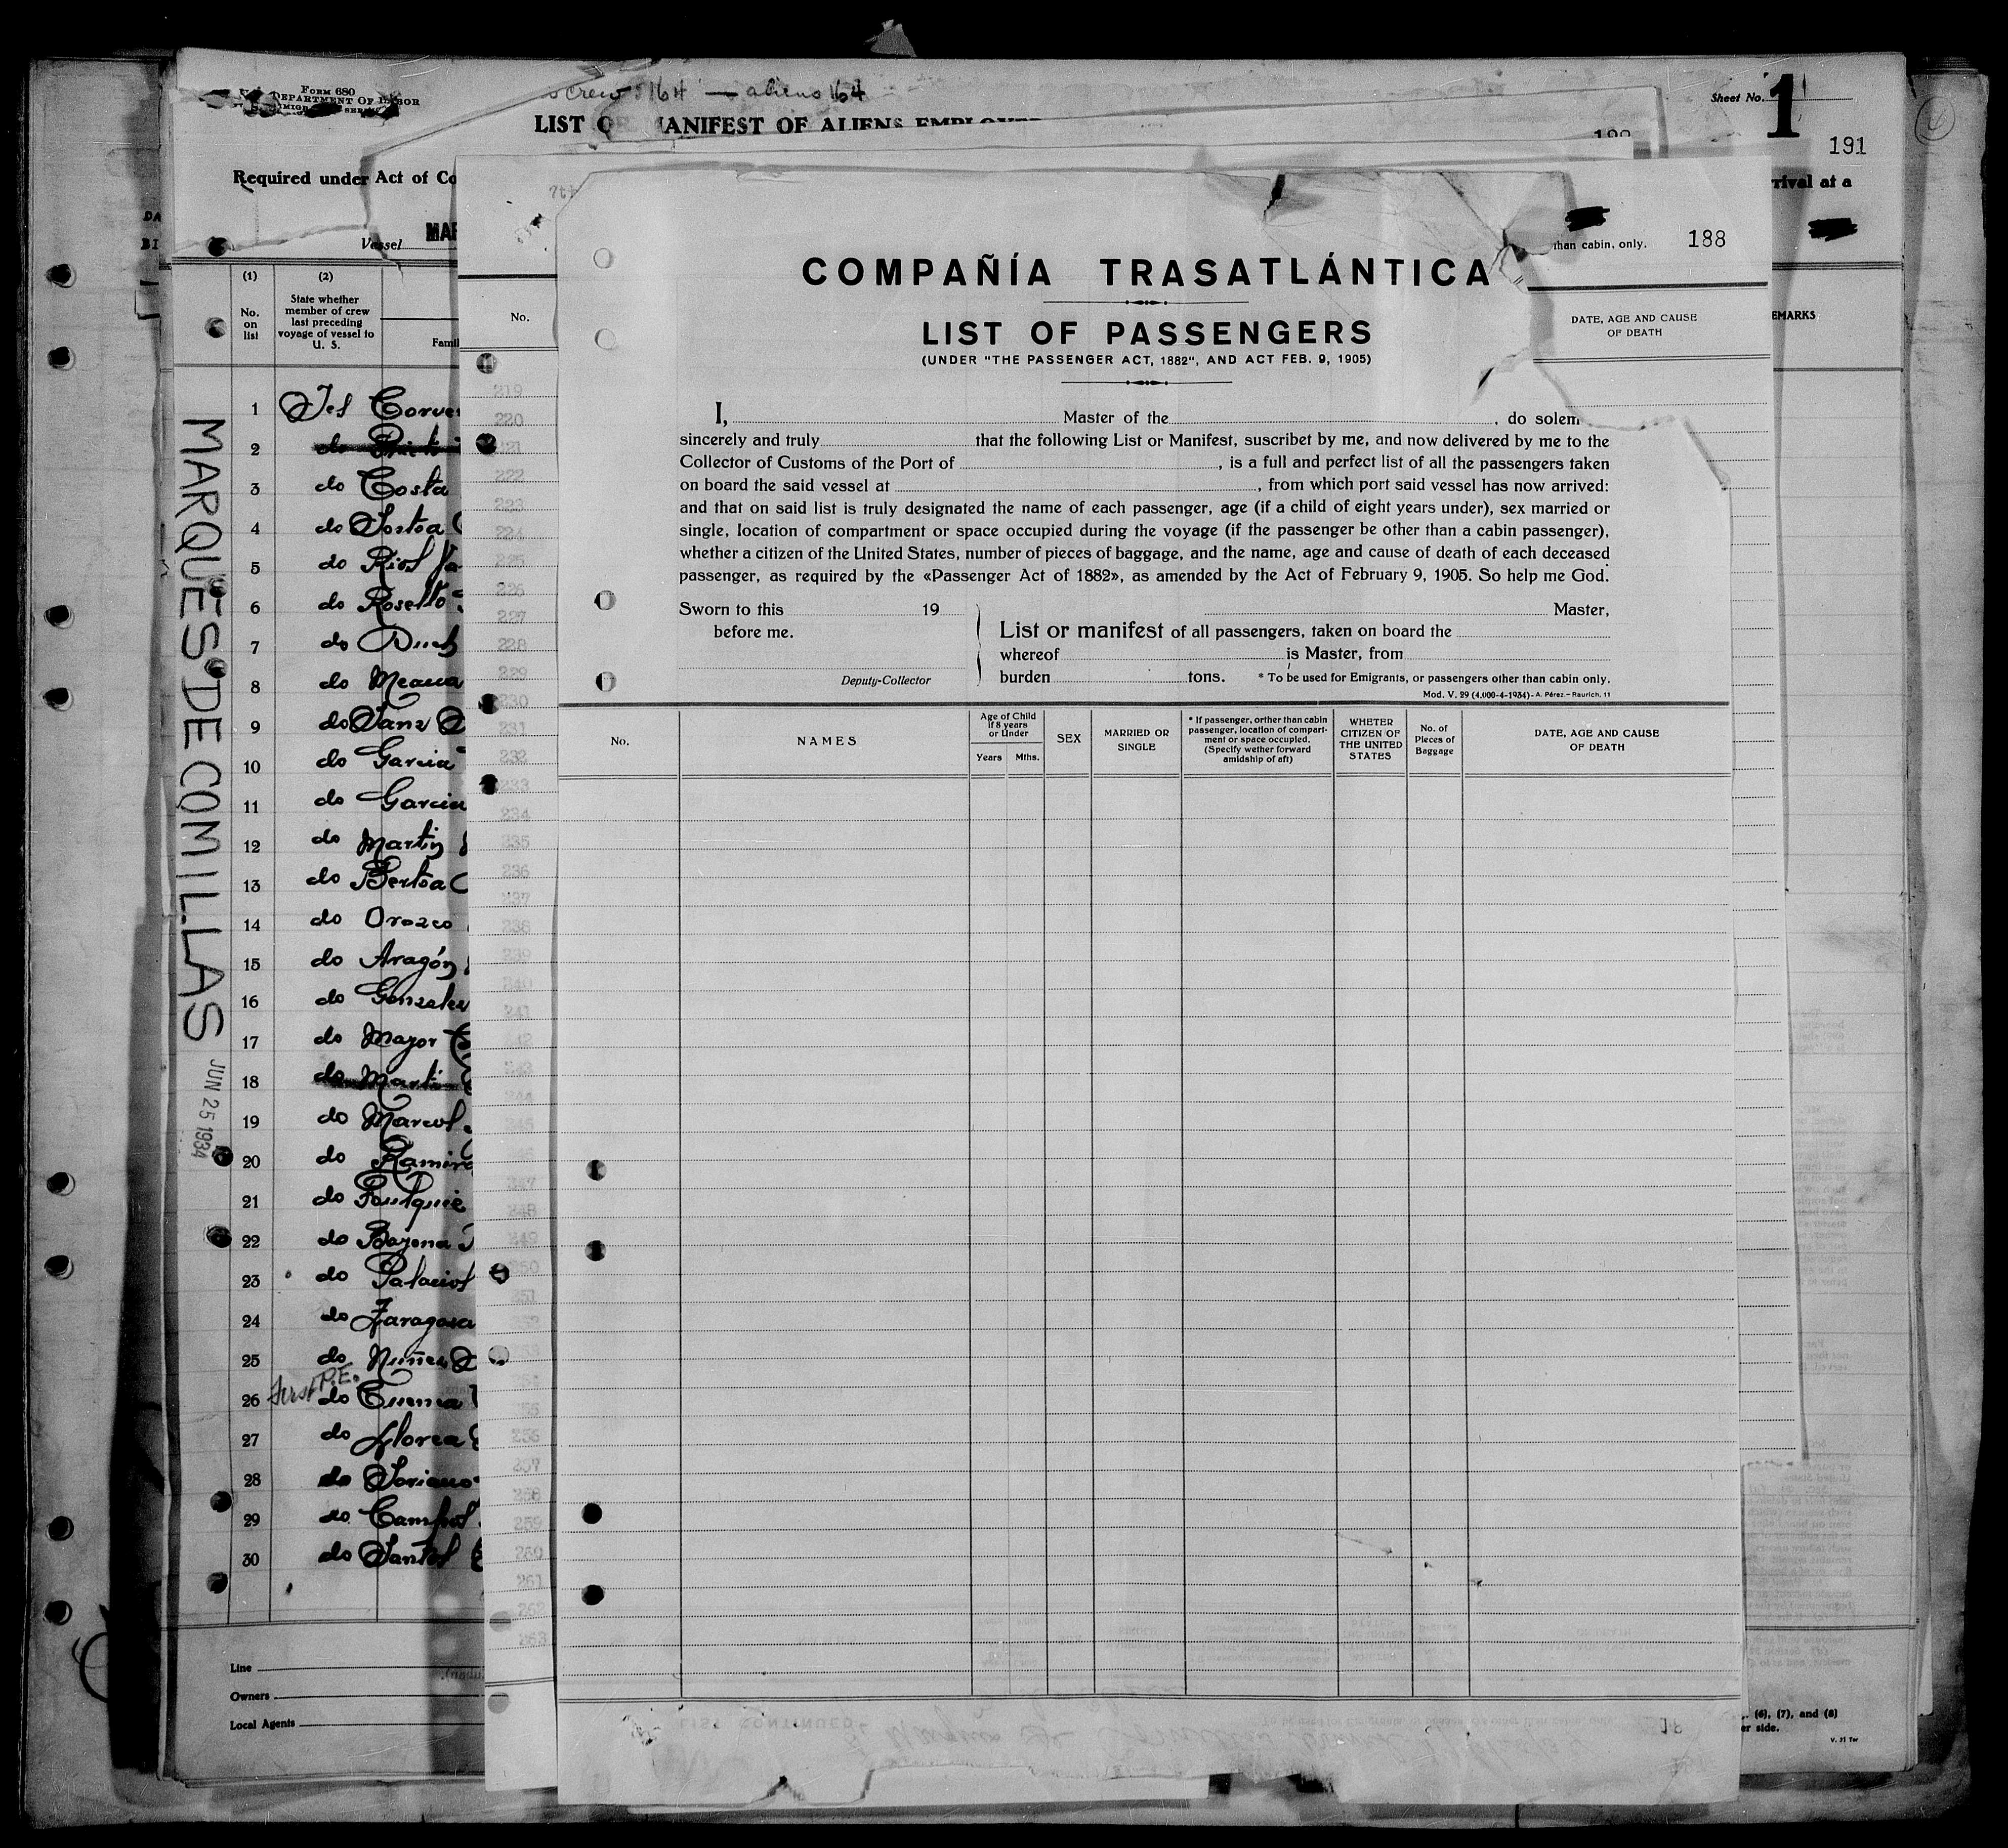 crew 164 — aliens 164
Form 680
DEPARTMENT OF LABOR
LIST OR MANIFEST OF ALIENS EMPLOYED
Sheet No. 1
191
Required under Act of Co
rival at a
Vessel
MAR
than cabin, only. 188
COMPAÑÍA TRASATLÁNTICA
LIST OF PASSENGERS
(UNDER "THE PASSENGER ACT, 1882", AND ACT FEB. 9, 1905)
I, Master of the , do solem
sincerely and truly that the following List or Manifest, suscribet by me, and now delivered by me to the
Collector of Customs of the Port of , is a full and perfect list of all the passengers taken
on board the said vessel at , from which port said vessel has now arrived:
and that on said list is truly designated the name of each passenger, age (if a child of eight years under), sex married or
single, location of compartment or space occupied during the voyage (if the passenger be other than a cabin passenger),
whether a citizen of the United States, number of pieces of baggage, and the name, age and cause of death of each deceased
passenger, as required by the «Passenger Act of 1882», as amended by the Act of February 9, 1905. So help me God.
Sworn to this 19 Master,
before me.
List or manifest of all passengers, taken on board the
whereof is Master, from
Deputy-Collector
burden tons. * To be used for Emigrants, or passengers other than cabin only.
Mod. V. 29 (4.000-4-1934)- A. Pérez.- Raurich, 11
No.
NAMES
Age of Child
if 8 years
or Under
Years Mths.
SEX
MARRIED OR
SINGLE
* If passenger, orther than cabin
passenger, location of compart-
ment or space occupied.
(Specify wether forward
amidship of aft)
WHETER
CITIZEN OF
THE UNITED
STATES
No. of
Pieces of
Baggage
DATE, AGE AND CAUSE
OF DEATH
DATE, AGE AND CAUSE
OF DEATH
EMARKS
(1)
No.
on
list
(2)
State whether
member of crew
last preceding
voyage of vessel to
U. S.
Famil
No.
MARQUES DE COMILLAS
JUN 25 1934
1 Yes Corve
2 do
3 do Costa
4 do
5 do Rios
6 do Rosello
7 do
8 do Meana
9 do Sanz
10 do Garcia
11 do Garcia
12 do Martin
13 do
14 do Orozco
15 do Aragón
16 do Gonzalez
17 do Mayor
18 do Marti
19 do Marcos
20 do Ramire
21 do
22 do
23 do Palacios
24 do Zaragoza
25 do Nuñez
First P.E.
26 do
27 do Llorca
28 do Soriano
29 do Campos
30 do Santos
219
220
221
222
223
224
225
226
227
228
229
230
231
232
233
234
235
236
237
238
239
240
241
Line
Owners
Local Agents
. (6), (7), and (8)
er side.